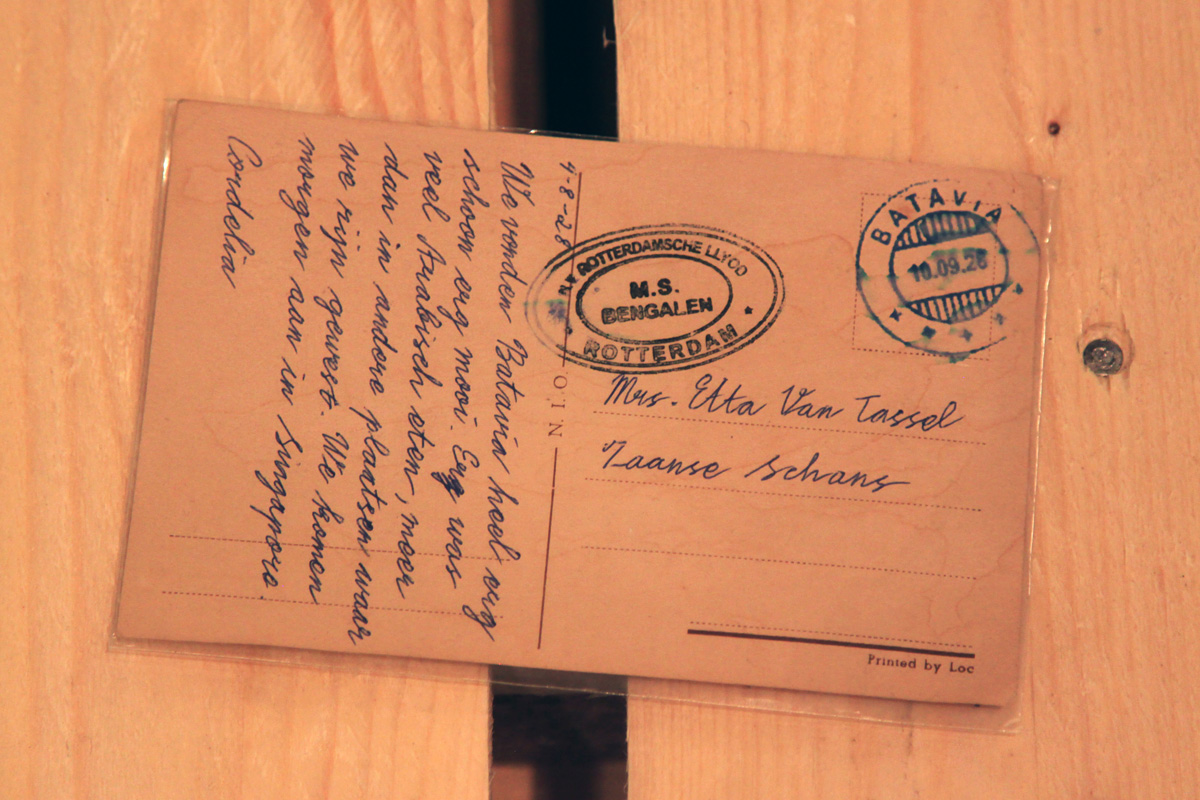 4-8-28
We vonden Batavia heel erg
schoon erg mooi. Erg was
veel Arabisch eten, meer
dan in andere plaatsen waar
we zijn geweest. We komen
morgen aan in Singapore.
Cordelia
N.I.O.
ROTTERDAMSCHE LLYOD
M.S.
BENGALEN
ROTTERDAM
BATAVIA
10.09.28
Mrs. Etta Van Tassel
Zaanse Schans
Printed by Loc